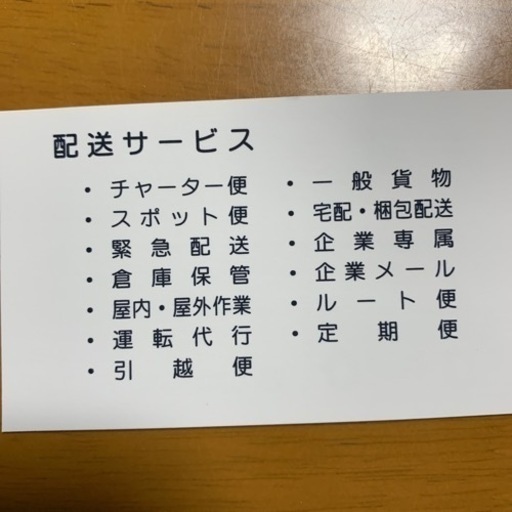 配送サービス
・チャーター便
・スポット便
・緊急配送
・倉庫保管
・屋内・屋外作業
・運転代行
・引越便
・一般貨物
・宅配・梱包配送
・企業専属
・企業メール
・ルート便
・定期便